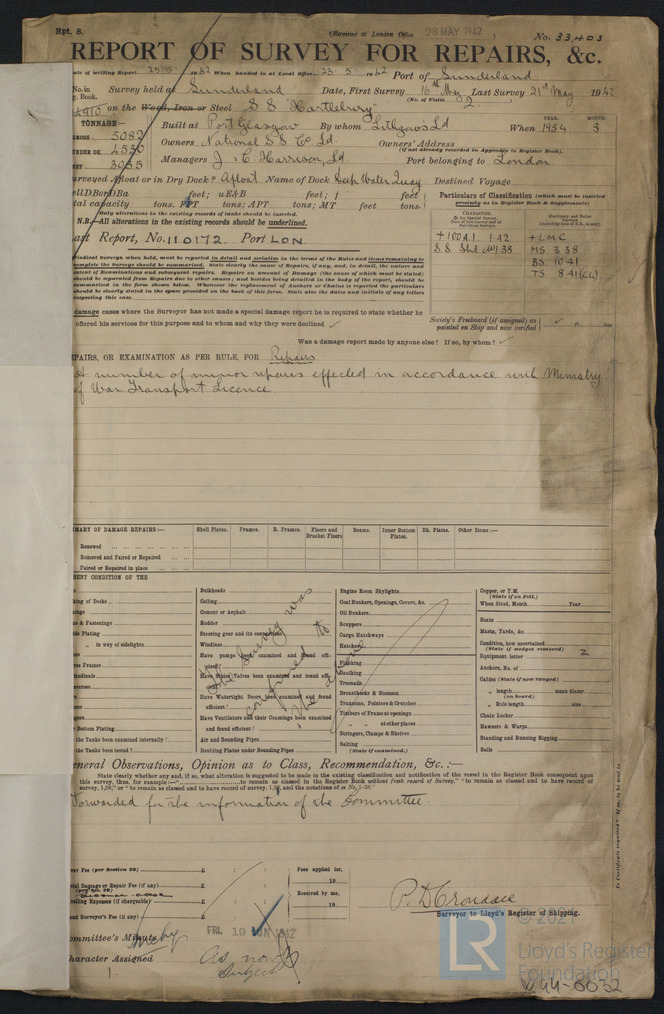 Rpt. 8.
(Received at London Office 28 MAY 1942
No. 33,403
REPORT OF SURVEY FOR REPAIRS, &c.
of writing Report 1942 When handed in at Local Office 23. 5 1942 Port of Sunderland
No. in Survey held at Sunderland Date, First Survey 16th May Last Survey 21st May 1942
Book. (No. of Visits 2 )
on the Wood, Iron or Steel S S "Hartlebury"
TONNAGE:—
GROSS 5082
UNDER DK. 4550
3055
YEAR. MONTH.
Built at Port Glasgow By whom Lithgows Ld When 1934 3
Owners National S S Co Ld Owners' Address
(if not already recorded in Appendix to Register Book).
Managers J. & C Harrison, Ld Port belonging to London
Surveyed Afloat or in Dry Dock? Afloat Name of Dock Deep Water Quay Destined Voyage
feet; uE&B feet; f feet;
capacity tons. FPT tons; APT tons; MT feet tons.
Only alterations in the existing records of tanks should be inserted.
N.B.—All alterations in the existing records should be underlined.
Last Report, No. 110172. Port LON.
Particulars of Classification (which must be inserted precisely as in Register Book & Supplements)
+100A1 1.42
S S Shl No1 38
+LMC
MS 3 38
BS 10 41
TS 8 41 (CL)
Periodical Surveys, when held, must be reported in detail and seriatim in the terms of the Rules and items remaining to
complete the Surveys should be summarised. State clearly the cause of Repairs, if any, and, in detail, the nature and
extent of Examinations and subsequent repairs. Repairs on account of Damage (the cause of which must be stated)
should be separated from Repairs due to other causes; and besides being detailed in the body of the report, should be
summarised in the form shown below. Whenever the replacement of Anchors or Chains is reported the particulars
should be clearly stated in the space provided on the back of this form. State also the dates and initials of any letters
respecting this case.
damage cases where the Surveyor has not made a special damage report he is required to state whether he
offered his services for this purpose and to whom and why they were declined ✓
Society's Freeboard (if assigned) as
painted on Ship and now verified
Was a damage report made by anyone else? If so, by whom? ✓
REPAIRS, OR EXAMINATION AS PER RULE, FOR Repairs
A number of minor repairs effected in accordance with Ministry
of War Transport Licence
SUMMARY OF DAMAGE REPAIRS:—
Shell Plates. Frames. R. Frames. Floors and Bracket Floors Beams. Inner Bottom Plates. Dk. Plates. Other Items:—
Renewed
Removed and Faired or Repaired
Faired or Repaired in place
PRESENT CONDITION OF THE
of Decks
& Fastenings
Plating
in way of sidelights
Frames
Bottom Plating
the Tanks been examined internally?
the Tanks been tested?
Bulkheads
Ceiling
Cement or Asphalt
Rudder
Steering gear and its connections
Windlass
Have pumps been examined and found efficient?
Have Sluice Valves been examined and found efficient?
Have Watertight Doors been examined and found efficient?
Have Ventilators and their Coamings been examined and found efficient?
Air and Sounding Pipes
Doubling Plates under Sounding Pipes
The Survey was
confined to
the above
Engine Room Skylights
Coal Bunkers, Openings, Covers, &c.
Oil Bunkers
Scuppers
Cargo Hatchways
Hatches
Planking
Caulking
Treenails
Breasthooks & Stemson
Transoms, Pointers & Crutches
Timbers of Frame at openings
at other places
Stringers, Clamps & Shelves
Salting
(State if examined.)
Copper, or Y.M.
(State if on Felt.)
When fitted, Month Year
Boats
Masts, Yards, &c.
Condition, how ascertained
(State if wedges removed)
Equipment letter Z
Anchors, No. of
Cables (State if now ranged)
length mean diamr.
(on board)
Rule length size
Chain Locker
Hawsers & Warps
Standing and Running Rigging
Sails
General Observations, Opinion as to Class, Recommendation, &c.:—
State clearly whether any, and if so, what alteration is suggested to be made in the existing classification and notification of the vessel in the Register Book consequent upon
Forwarded for the information of the Committee.
Fee (per Section 29) £
Damage or Repair Fee (if any) £
Travelling Expenses (if chargeable) £
Surveyor's Fee (if any) £
Fees applied for,
19
Received by me,
19
P. D Crondace
Surveyor to Lloyd's Register of Shipping.
Committee's Minute
FRI. 19 JUN 1942
Character Assigned
As now
Subject
© 2021
LR
Lloyd's Register
Foundation
W44-0032